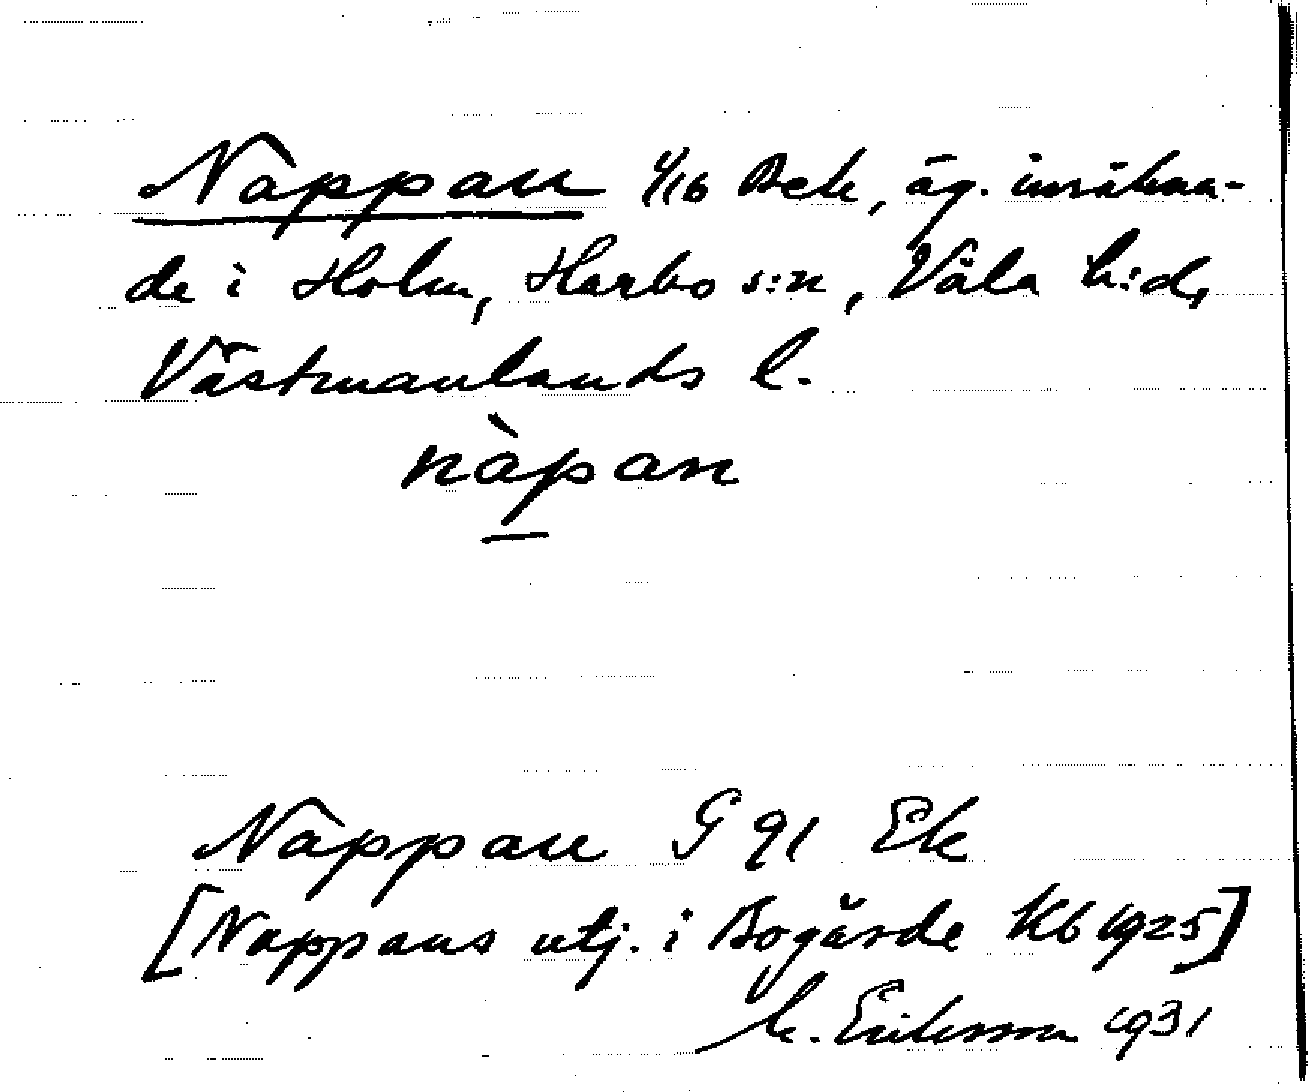 Nappan 1/16 Bek, äg. inräknan-
de i Holm, Harbo s:n, Våla h:d,
Västmanlands l.
nàpan
Nappan G 91 Ek
[Nappans utj. i Bogärde Kb 1925]
M. Eriksson 1931